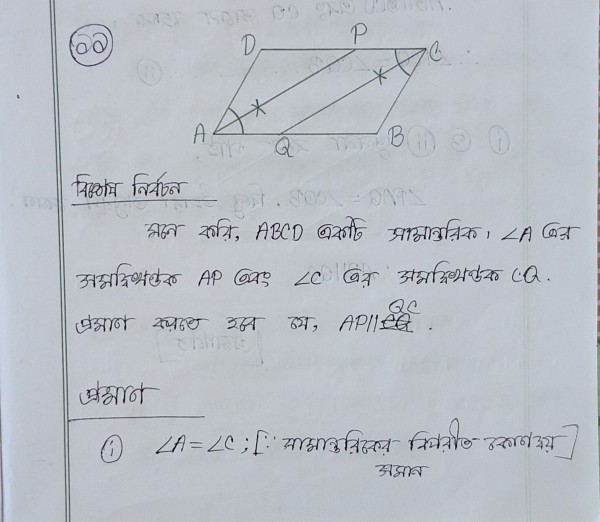 ১১
D P C
A Q B
বিশেষ নির্বচন
মনে করি, ABCD একটি সামান্তরিক। ∠A এর
সমদ্বিখণ্ডক AP এবং ∠C এর সমদ্বিখণ্ডক CQ.
QC
প্রমাণ করতে হবে যে, AP||
প্রমাণ
i ∠A=∠C; [∵ সামান্তরিকের বিপরীত কোণদ্বয়]
সমান